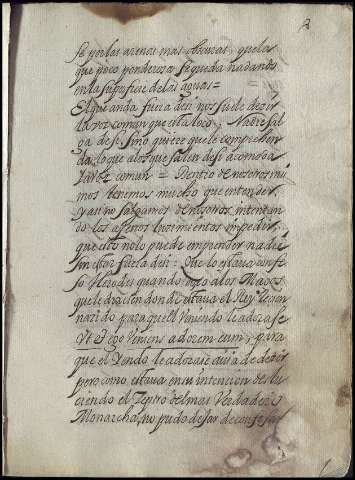 2
se por las arenas mas obscuras, que los
que poco ponderosos se queda nadando
en la superficie de las aguas =
El que anda fuera de si nos suele dezir
la voz comun que esta loco; Nadie sal
ga de si, sino quiere que le comprehen
da, lo que a los que salen de si acomoda
la voz comun = Dentro de nosotros mis
mos tenemos mucho que entender,
y assi no salgamos de nosotros intentan
do los agenos movimientos impedir,
que esto no lo puede emprender nadie
sin estar fuera de si: Que lo estava confe
so Herodes quando a los Magos
que le dixessen donde estava el Rey recien
nazido para que el Veniendo le adorase
Vt et ego veniens adorem eum, para
que el Yendo le adorase avia de dezir
pero como estava en su intencion des lu
ciendo el Zeptro del mas Verdadero
Monarcha, no pudo dejar de confesar